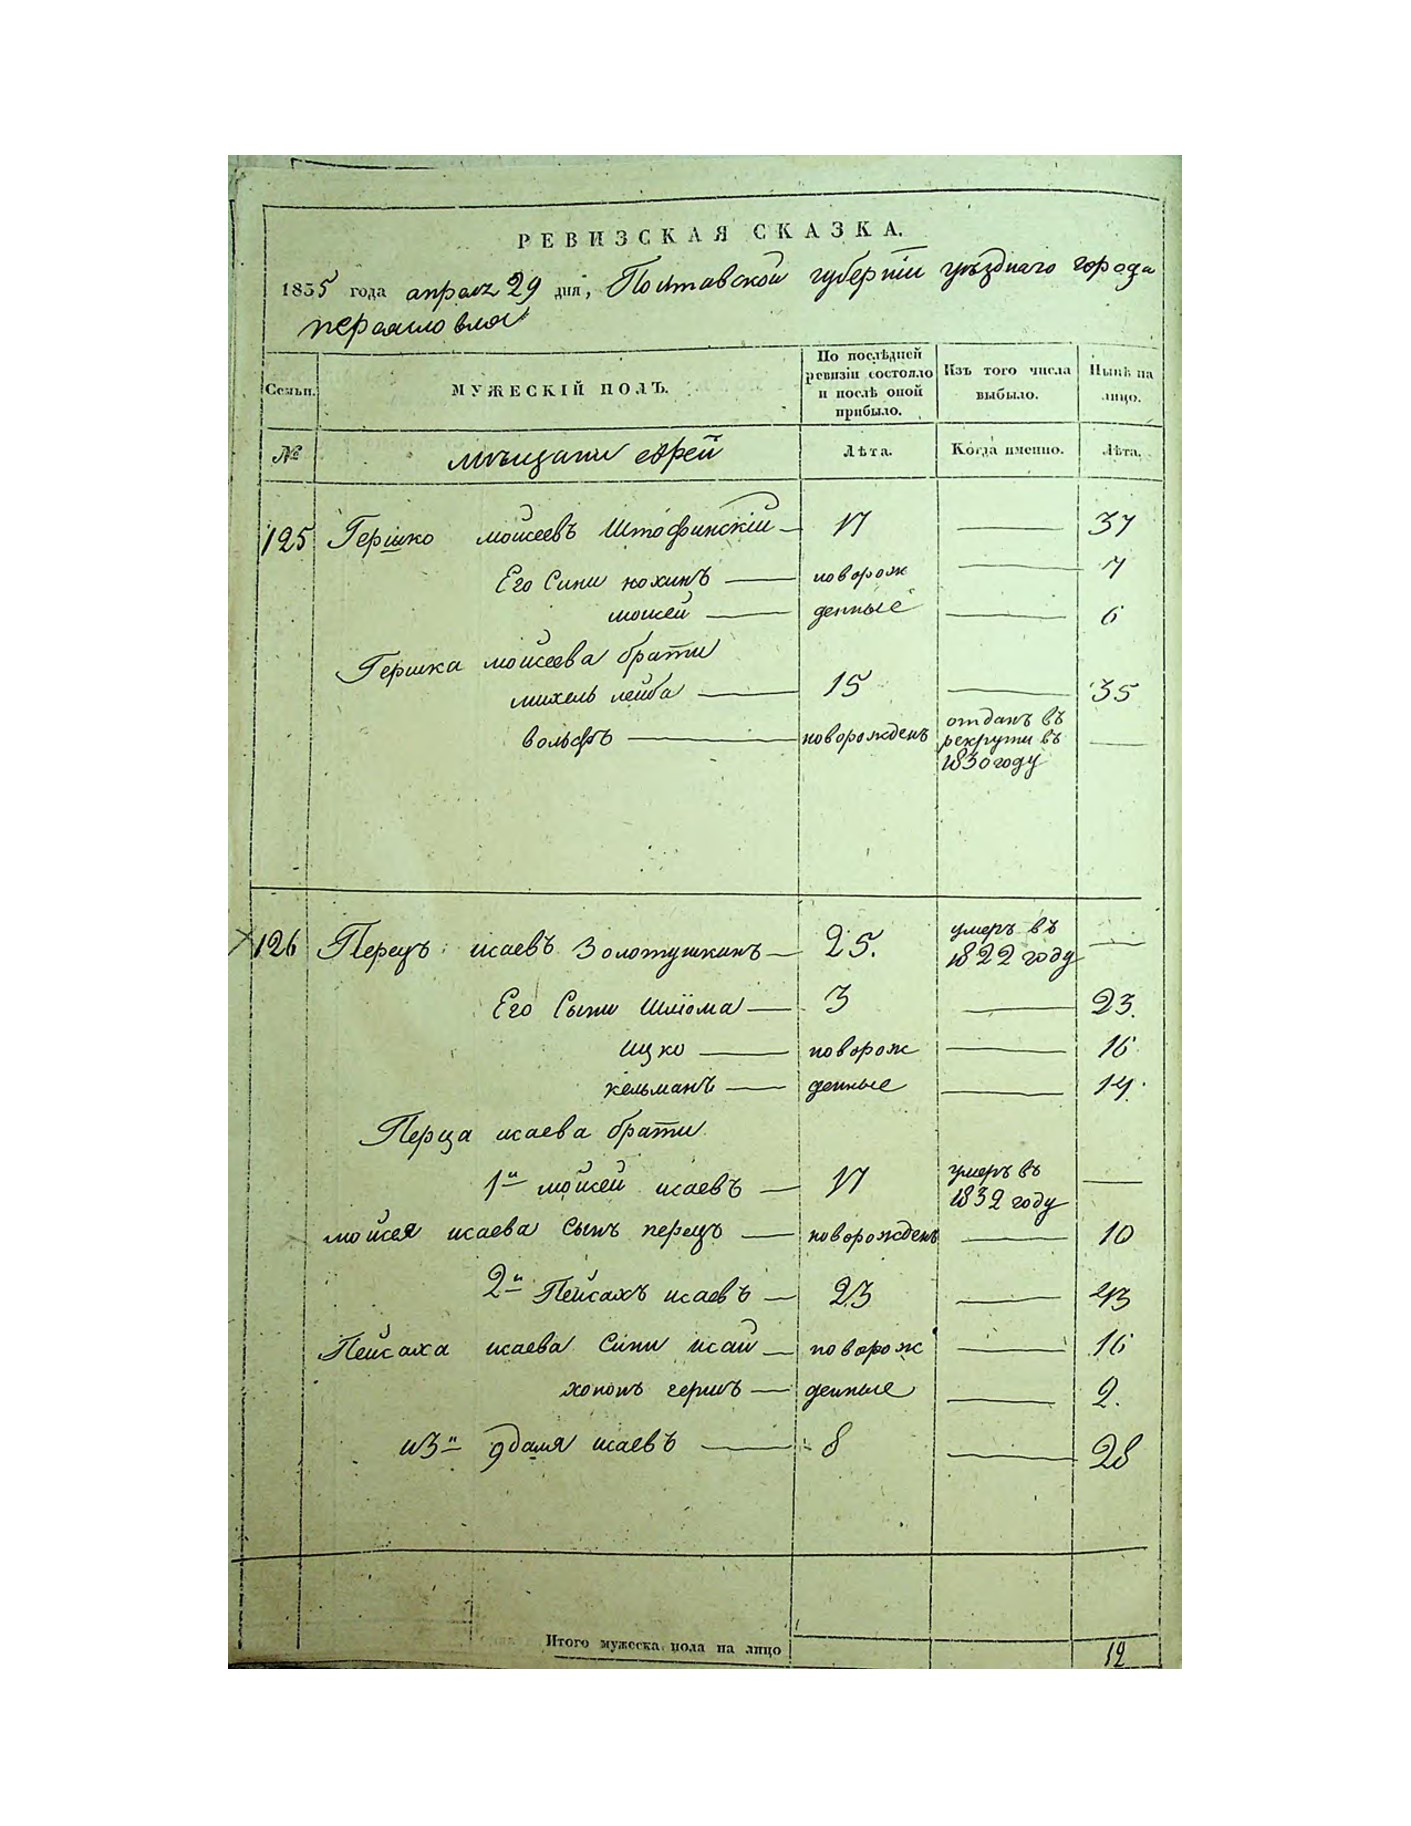 РЕВИЗСКАЯ СКАЗКА.
1835 года апреля 29 дня, Полтавской губернии уѣзднаго города
переяславля
Семьи. МУЖЕСКІЙ ПОЛЪ. По послѣдней ревизіи состояло и послѣ оной прибыло. Изъ того числа выбыло. Нынѣ на лицо.
№ мѣщани еврей Лѣта. Когда именно. Лѣта.
125 Гершко мойсеевъ Штофинскій — 17 — 37
Его Сини нохинъ — новорож — 7
мошей — денные — 6
Гершка мойсеева брати
михель лейба — 15 — 35
вольфъ — новорожденъ отданъ въ рекрути въ 1830 году —
126 Перецъ исаевъ Золотушкинъ — 25. умеръ въ 1822 году —
Его Сыни Шліома — 3 — 23.
ицко — новорож — 16
кельманъ — денные — 14.
Перца исаева брати
1й мойсей исаевъ — 17 умеръ въ 1832 году —
мойсея исаева сынъ перецъ — новорожденъ — 10
2й Пейсахъ исаевъ — 23 — 43
Пейсаха исаева Сини исай — новорож — 16
хононъ гершъ — денные — 2.
и 3й исаевъ — 8 — 28
Итого мужеска пола на лицо 12